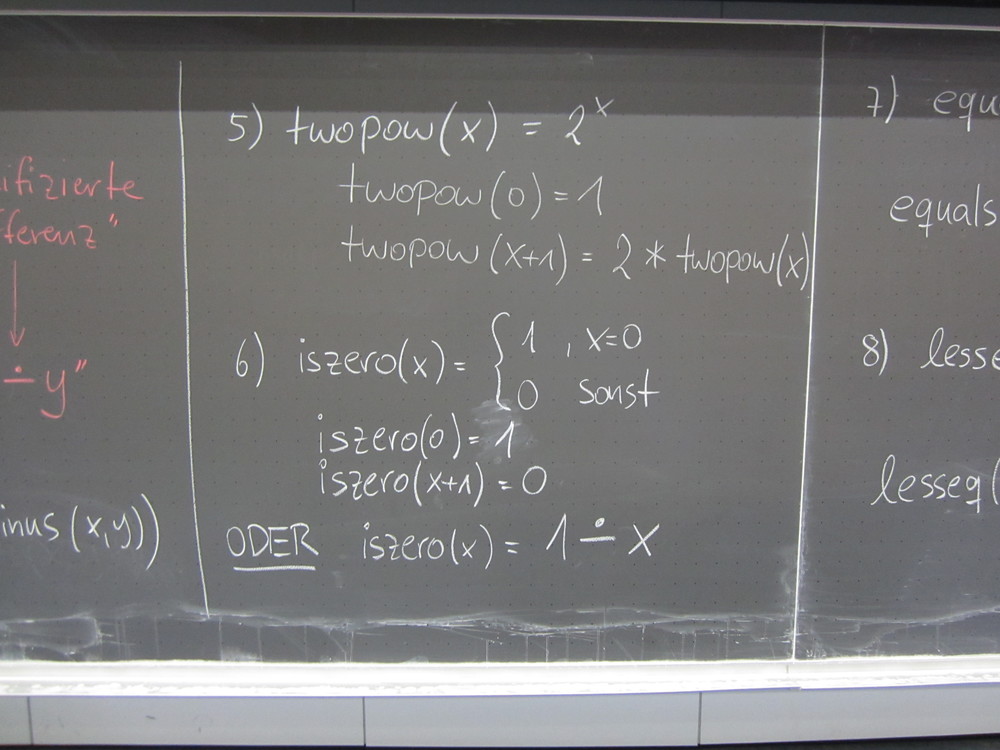 ifizierte
ferenz"
∸ y"
inus(x,y))
5) twopow(x) = 2^x
twopow(0) = 1
twopow(x+1) = 2 * twopow(x)
6) iszero(x) = { 1 , x=0
0 sonst
iszero(0) = 1
iszero(x+1) = 0
ODER iszero(x) = 1 ∸ x
7) equ
equals
8) lesse
lesseq(